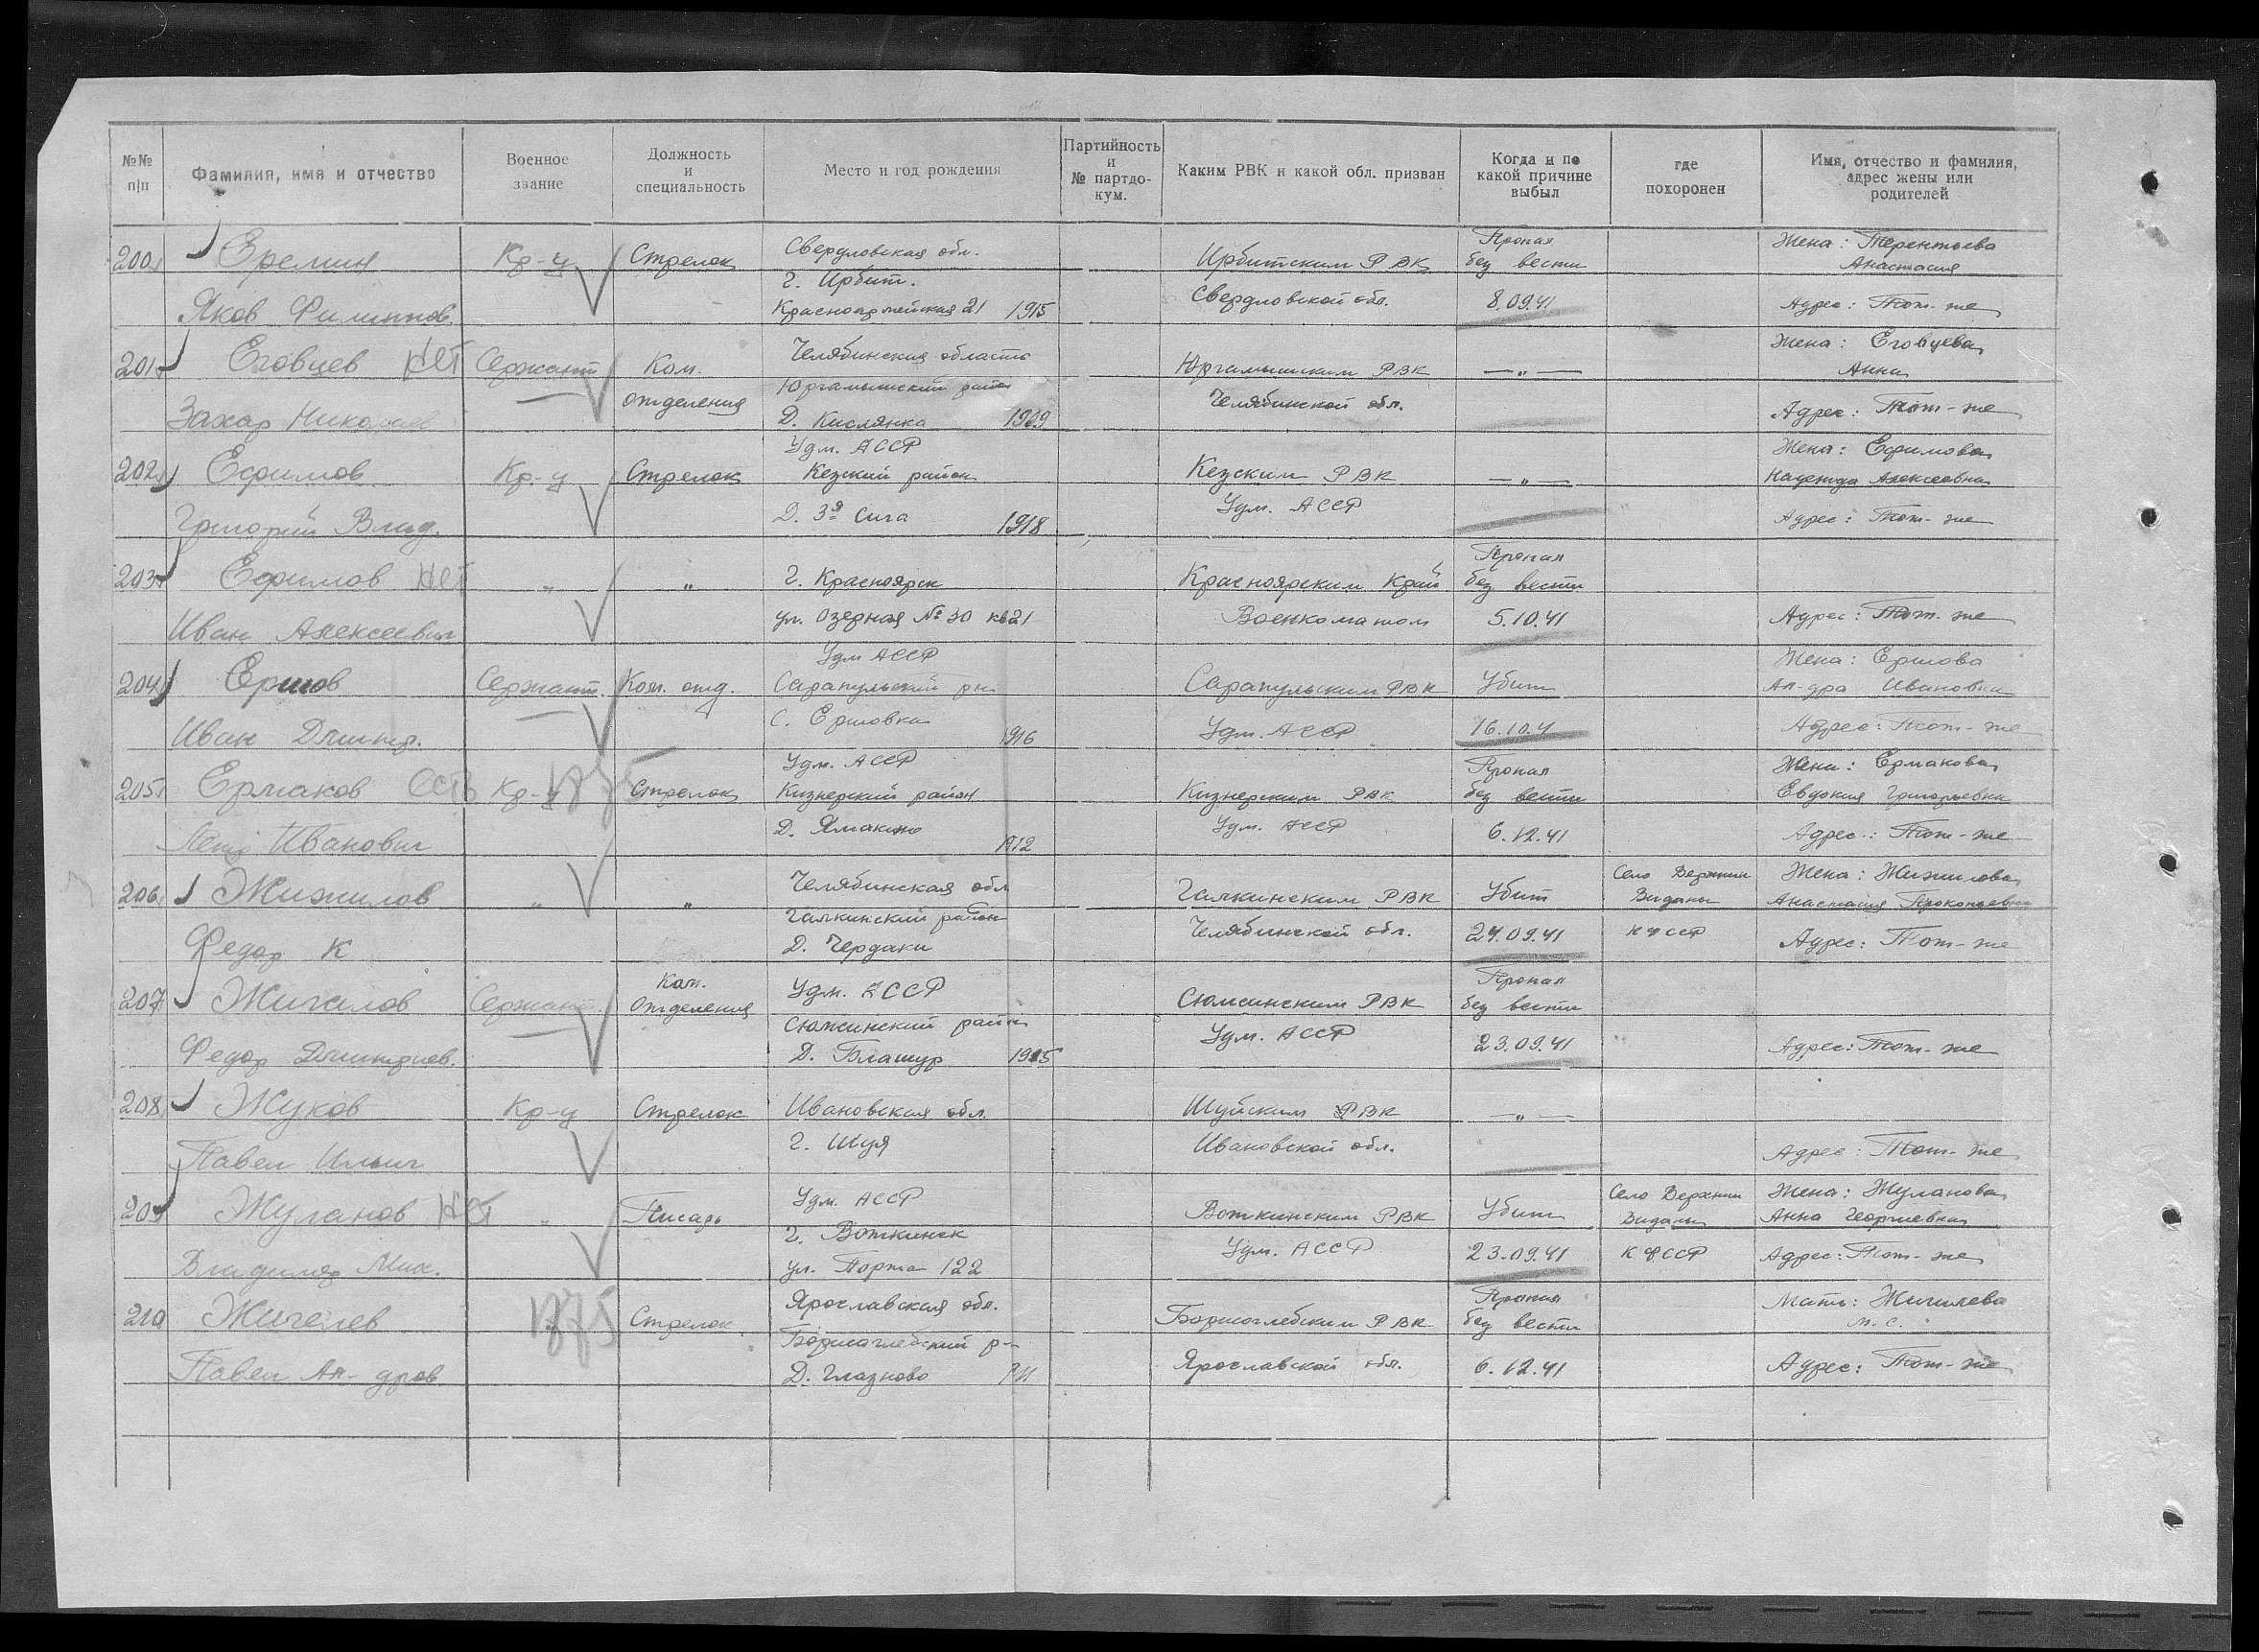 №№ п|п
Фамилия, имя и отчество
Военное звание
Должность и специальность
Место и год рождения
Партийность и № партдокум.
Каким РВК и какой обл. призван
Когда и по какой причине выбыл
где похоронен
Имя, отчество и фамилия, адрес жены или родителей
200 Еремин Кр-ц Стрелок Свердловская обл. Ирбитским РВК Пропал без вести Жена: Терентьева Анастасия
Яков Филиппов. г. Ирбит. Красноармейская 21 1915 Свердловской обл. 8.09.41 Адрес: Тот-же
201 Еговцев нет Сержант Ком. Челябинская область Юргамышским РВК —"— Жена: Еговцева Анна
Захар Николаев отделения Юргамышский район Д. Кислянка 1909 Челябинской обл. Адрес: Тот-же
202 Ефимов Кр-ц Стрелок Удм. АССР Кезский район Кезским РВК —"— Жена: Ефимова Надежда Алексеевна
Григорий Влад. Д. 3я Сига 1918 Удм. АССР Адрес: Тот-же
203 Ефимов нет " " г. Красноярск Красноярским Край Пропал без вести
Иван Алексеевич ул. Озерная № 30 кв 21 Военкоматом 5.10.41 Адрес: Тот-же
204 Ершов Сержант. Ком. отд. Удм АССР Сарапульский рн Сарапульским РВК Убит Жена: Ершова Ал-дра Ивановна
Иван Дмитр. с. Ершовка 1916 Удм. АССР 16.10.4 Адрес: Тот-же
205 Ермаков есть Кр-ц Стрелок Удм. АССР Кизнерский район Кизнерским РВК Пропал без вести Жена: Ермакова Евдокия Григорьевна
Иванович Д. Ямакино 1912 Удм. АССР 6.12.41 Адрес: Тот-же
206 Жижилов " " Челябинская обл Галкинским РВК Убит Село Верхнии Виданы Жена: Жижилова Анастасия Прокопьевн
Федор К Галкинский район Д. Чердаки Челябинской обл. 24.09.41 КФССР Адрес: Тот-же
207 Жигалов Сержант Ком. отделения Удм. АССР Сюмсинским РВК Пропал без вести
Федор Дмитриев. Сюмсинский район Д. Блашур 1915 Удм. АССР 23.09.41 Адрес: Тот-же
208 Жуков Кр-ц Стрелок Ивановская обл. Шуйским РВК —"—
Павел Ильич г. Шуя Ивановской обл. Адрес: Тот-же
209 Жуланов нет " Писарь Удм. АССР Воткинским РВК Убит Село Верхнии Виданы Жена: Жуланова Анна Георгиевна
Владимир Мих. г. Воткинск ул. 122 Удм. АССР 23.09.41 КФССР Адрес: Тот-же
210 Жигалев 1875 Стрелок Ярославская обл. Борисоглебским РВК Пропал без вести Мать: Жигилева М. С.
Павел Ал-дров. Борисоглебский р-н Д. Глазново Ярославской обл. 6.12.41 Адрес: Тот-же